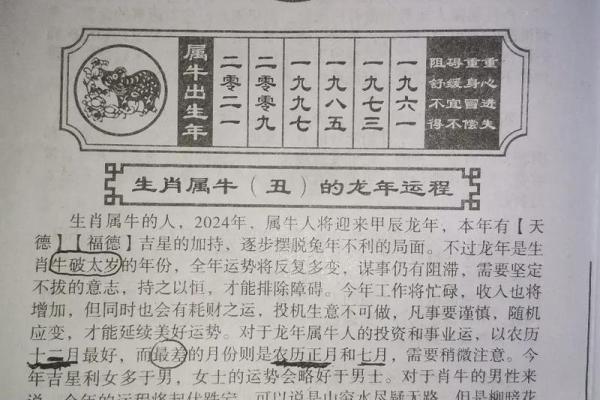 属牛出生年
二零二一
二零零九
一九九七
一九八五
一九七三
一九六一
阻碍重重
舒缓身心
不宜冒
得不偿失
生肖属牛（丑）的龙年运程
生肖属牛的人，2024年，属牛人将迎来甲辰龙年，本年有【天
德】【福德】吉星的加持，逐步摆脱兔年不利的局面。不过龙年是生
肖牛破太岁的年份，全年运势将反复多变，谋事仍有阻滞，需要坚定
不拔的意志，持之以恒，才能排除障碍。今年工作将忙碌，收入也将
增加，但同时也会有耗财之运，投机生意不可做，凡事要谨慎，随机
应变，才能延续美好运势。对于龙年属牛人的投资和事业运，以农历
十二月最好，而最差的月份则是农历正月和七月，需要稍微注意。今
年吉星利女多于男，女士的运势会略好于男士。对于肖牛的男性来
说，今年的运程将起伏跌宕，可以说是山穷水尽疑无路，但是柳暗花